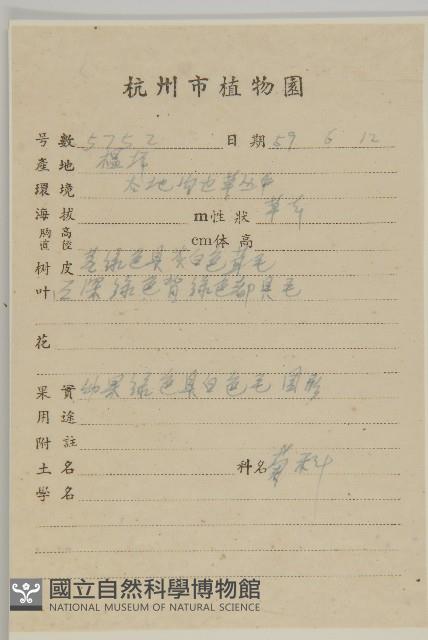 杭州市植物園
号數 5752 日期 59 6 12
產地
環境
海拔 m性狀 草本
胸高直徑 cm体高
树皮 茎绿色具灰白色茸毛
叶 深绿色背绿色都具毛
花
果實 幼果绿色具白色毛 圆形
用途
附註
土名 科名
學名
國立自然科學博物館
NATIONAL MUSEUM OF NATURAL SCIENCE